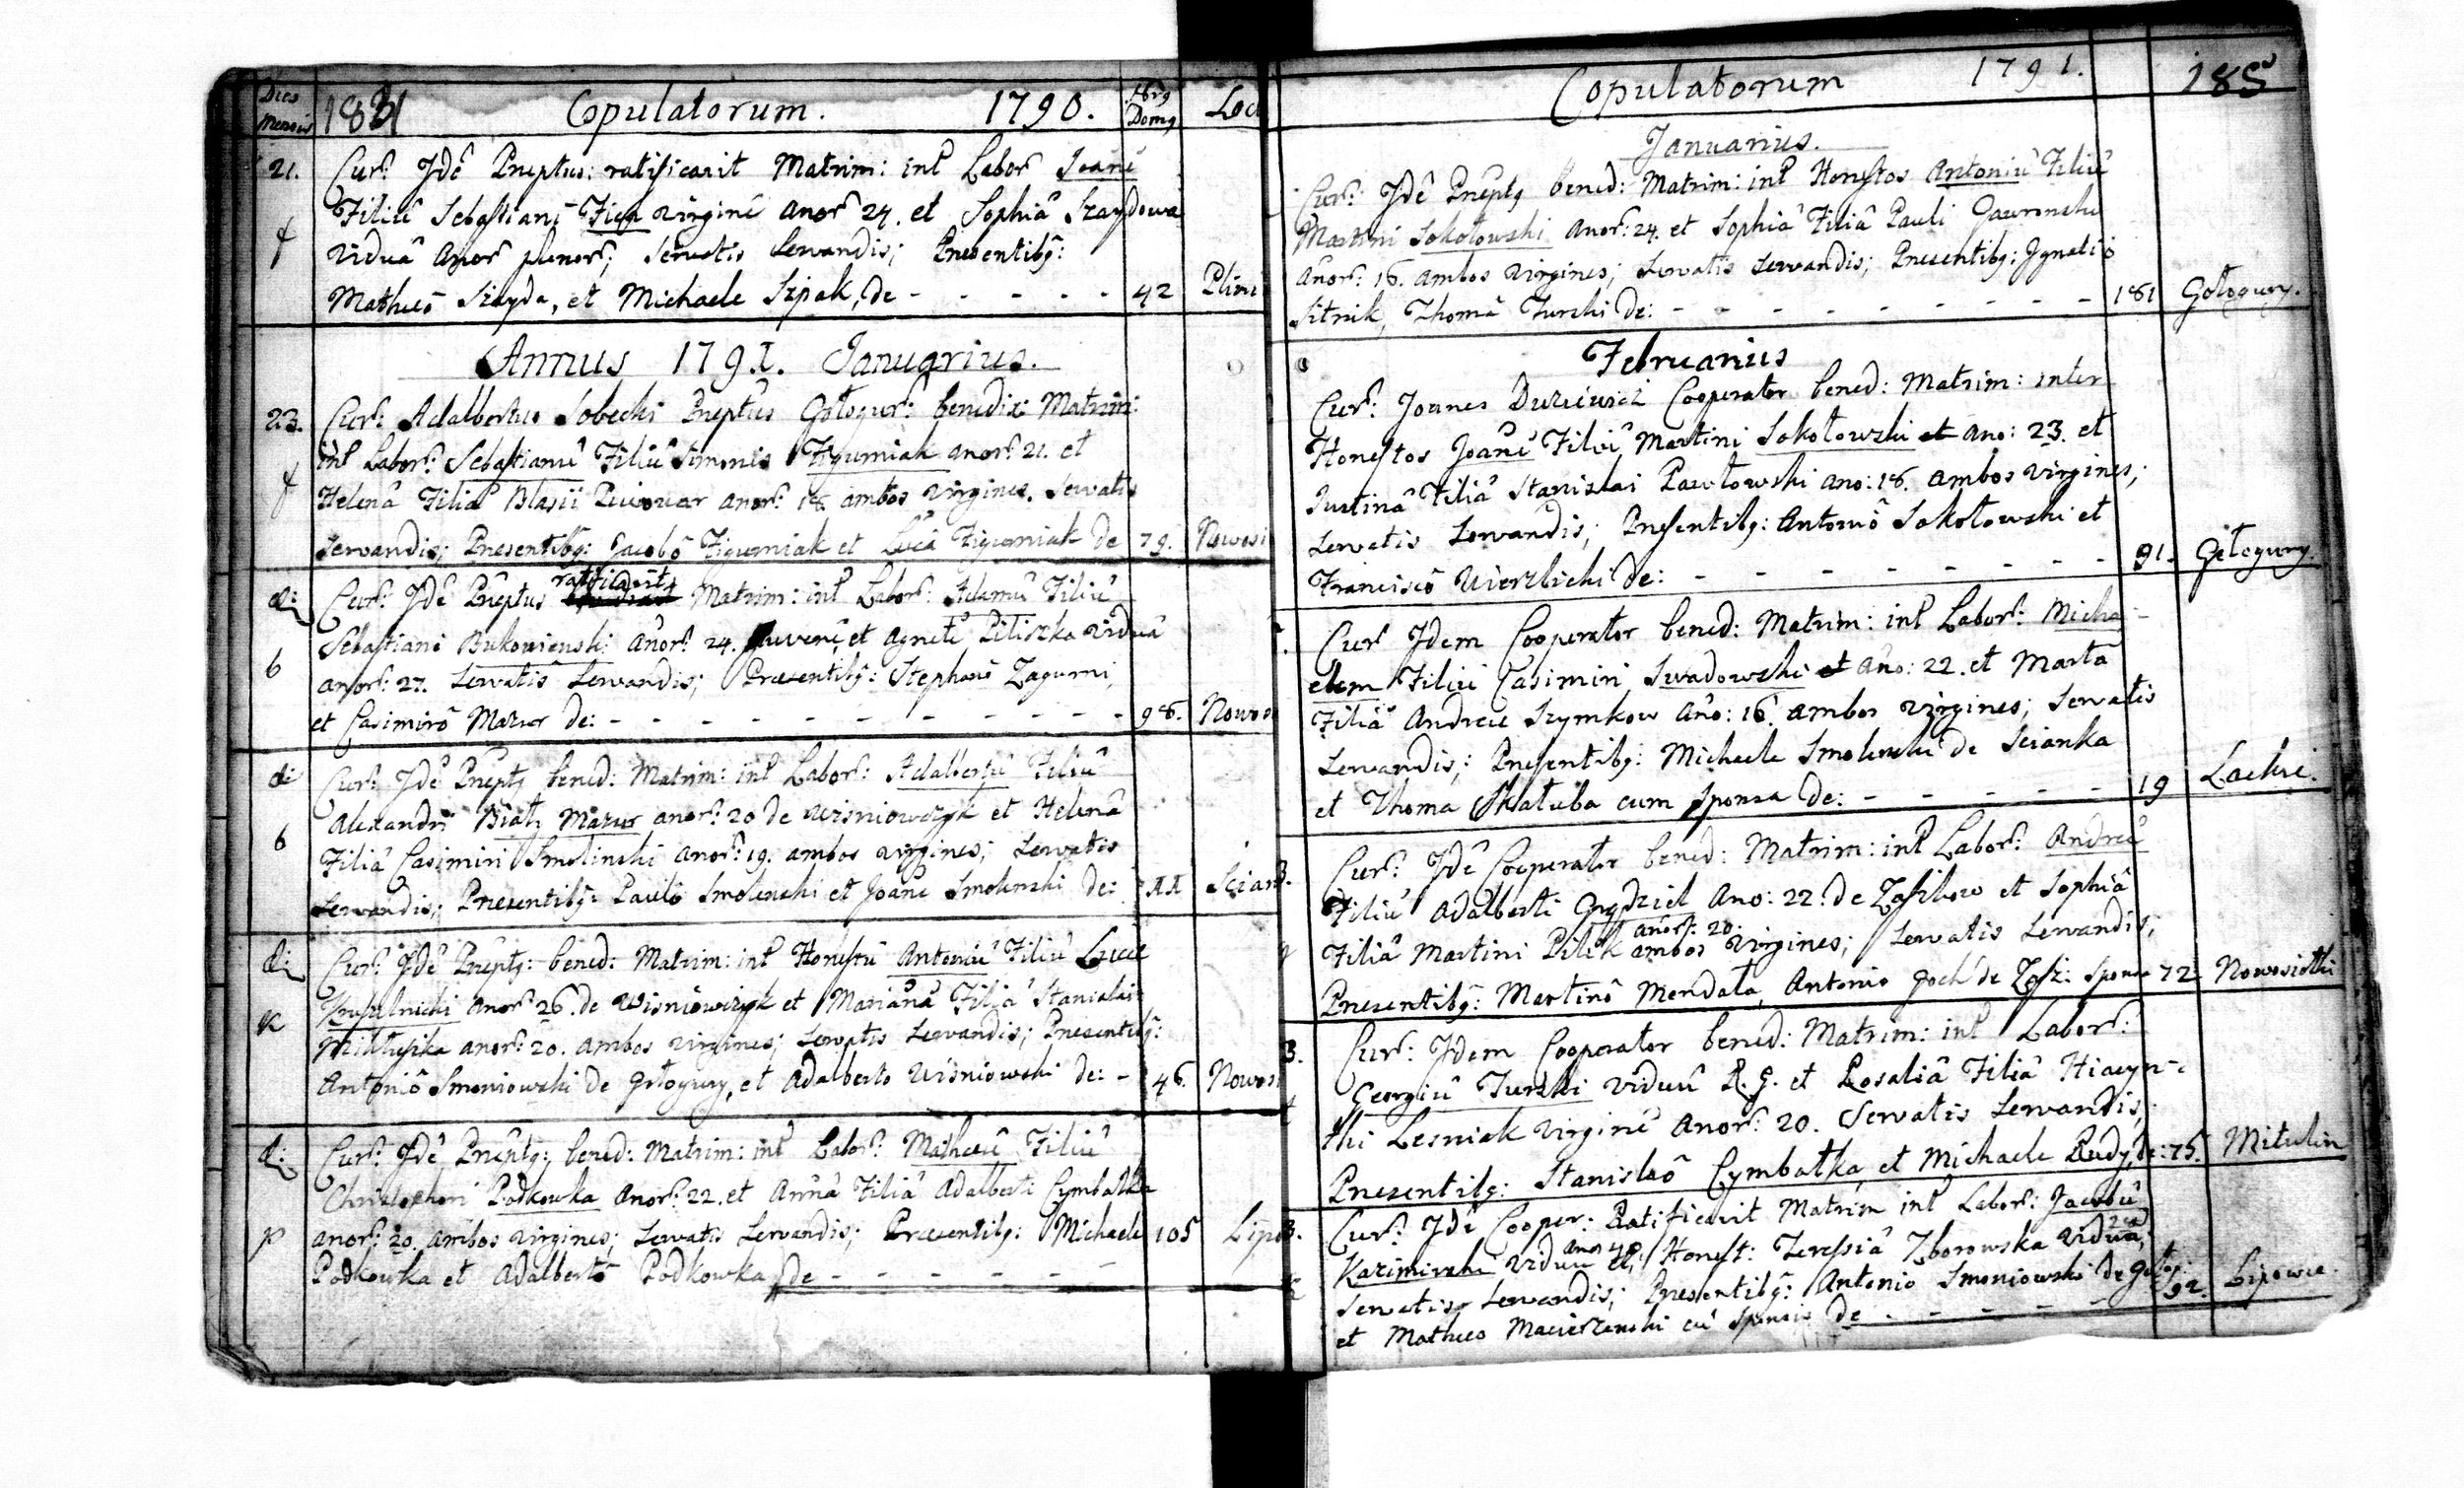 Dies Mensis 184 Copulatorum. 1790. Nrg Domg Loc
21. Cur: Jdê Prêptus: ratificavit Matrim: int Labor Joanê
Filiû Sebastiani Fica virginê anor 24. et Sophiâ Szaydowa
viduâ anor plenor; Servatis Servandis; Presentibg:
Matheô Szayda, et Michaele Szpak, de - - - - - 42 Plini
Annus 1791. Januarius.
23. Cur: Adalbertus Sobecki Prêptus Gołogur: benedix: Matrim:
int Labor: Sebastianû Filiû Simonis Figurniak anor: 21. et
Helenâ Filiâ Blasii anor: 18. ambos virgines. Servatis
Servandis; Presentibg: Jacobô Figurniak et Lucâ Figurniak de 79. Nowosi
di Cur: Jdê Prêptus ratificavit Matrim: int Labor: Adamû Filiû
Sebastiani Bukowienski anor: 24. Juvenê, et Agnetê Pitiszka viduâ
anor: 27. Servatis Servandis; Praesentibg: Stephanô Zagurni,
6
et Casimirô Mazur de: - - - - - - - - - - 98. Nowosi
di Cur: Jdê Prêptg bened: Matrim: int Labor: Adalbertû Filiû
Alexandri Biały Mazur anor: 20 de Wisniowczyk et Helenâ
6 Filiâ Casimiri Smolinski anor: 19. ambos virgines; Servatis
Servandis; Presentibg: Paulô Smolenski et Joanê Smolenski de: 11 Scian
di Cur: Jdê Prêptg: bened: Matrim: int Honestû Antoniû Filiû Lucae
anor 26. de Wisniowczyk et Mariânâ Filiâ Stanislai
K anor: 20. ambos virgines; Servatis Servandis; Presentibg:
Antoniô Smoniowski de Gołogury, et Adalberto Wisniowski de: - 46. Nowosi
di Cur: Jdê Prêptg: bened: Matrim: int Labor: Matheû Filiû
Christophori Podkowka Anor: 22. et Annâ Filiâ Adalberti Cymbalka
p anor: 20. ambos virgines; Servatis Servandis; Praesentibg: Michaele 105 Lipo
Podkowka et Adalbertô Podkowka, de - - - - - -
Copulatorum 1791. 185
Januarius.
Cur: Jdê Prêptg bened: Matrim: int Honestos Antoniû Filiû
Martini Sokołowski anor: 24. et Sophiâ Filiâ Pauli Gawronski
anor: 16. ambos virgines; Servatis Servandis; Presentibg: Jgnatiô
Sitnik, Thomâ Turski de: - - - - - - - - - 181 Gołogury.
Februarius
Cur: Joanes Cooperator bened: Matrim: inter
Honestos Joanê Filiû Martini Sokołowski et ano: 23. et
Justinâ Filiâ Stanislai Pawłowski ano: 18. ambos virgines;
Servatis Servandis; Presentibg: Antoniô Sokołowski et
Franciscô Wierzbicki de: - - - - - - - - 91. Gołogury.
Cur Jdem Cooperator bened: Matrim: int Labor: Micha-
elem Filiû Casimiri Swadowski et Ano: 22. et Martâ
Filiâ Andreae Szymkow Ano: 16. ambos virgines; Servatis
Servandis; Presentibg: Michaele Smolenski de Scianka
et Thoma Skałuba cum Sponsa de: - - - - - 19 Lackie.
3. Cur: Jdê Cooperator bened: Matrim: int Labor: Andreâ
Filiû Adalberti Gredziel Ano: 22. de Zaszkow et Sophiâ
Filiâ Martini Pilik anor: 20. ambos virgines; Servatis Servandis;
Presentibg: Martinô Mendala, Antonio Goch de Zasz: Sponsa 72 Nowosiołki
3. Cur: Jdem Cooperator bened: Matrim: int Labor:
Georgiû Turski viduû R. G. et Rosaliâ Filiâ Hiacyn-
thi Lesniak virginê Anor: 20. Servatis Servandis,
Presentibg: Stanislaô Cymbałka, et Michaele Rudy, de: 75. Mitulin
3. Cur: Jdê Cooper: Ratificavit Matrim int Labor: Jacobû
Kazimirski viduû anor 40. et, Honest: Teressiâ Zborowska viduâ;
Servatis Servandis; Presentibg: Antonio Smoniowski de Gołog: 92. Lipowce.
et Matheo Macierzenski cû Sponsis de - - - - -